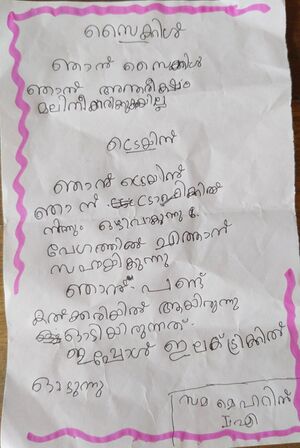 സൈക്കിൾ
ഞാൻ സൈക്കിൾ
ഞാൻ അന്തരീക്ഷം
മലിനീക്കരിക്കുക്കില്ല
ട്രെയിൻ
ഞാൻ ട്രെയിൻ
ഞാൻ ട്രാഫിക്കിൽ
നിന്നും ഒഴിവാകുന്നു
വേഗത്തിൽ എത്താൻ
സഹായിക്കുന്നു
ഞാൻ പണ്ട്
കൽക്കരിക്കിൽ ആയിരുന്നു
ഓടിയിരുന്നത്
ഇപ്പോൾ ഇലക്ട്രിക്കിൽ
ഓടുന്നു
സമ മെഹറിൻ